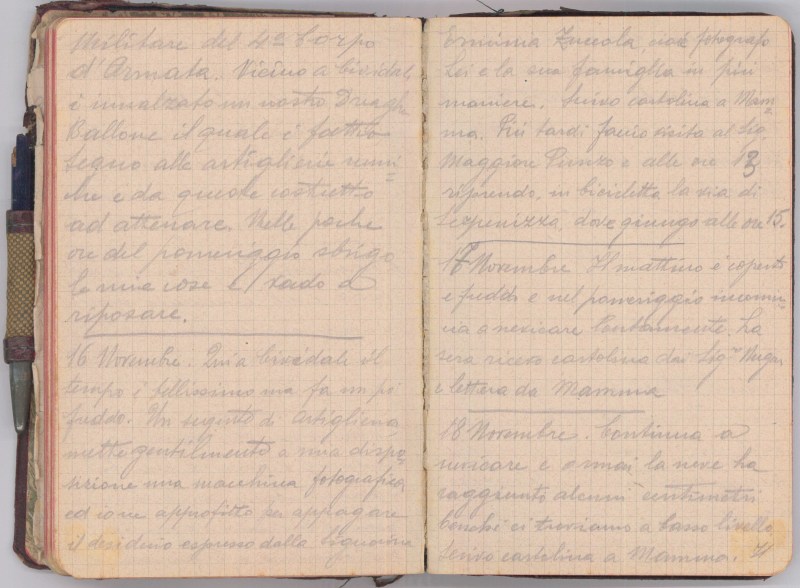 Militare del 4º Corpo
d'Armata. Vicino a Cividale
è innalzato un nostro Dragh
Ballone il quale è fatto
segno alle artiglierie nemi=
che e da queste costretto
ad atterrare. Nelle poche
ore del pomeriggio sbrigo
le mie cose e vado a
riposare.
16 Novembre. Qui a Cividale il
tempo è bellissimo ma fa un pò
freddo. Un sergente di Artiglieria
mette gentilmente a mia dispo=
sizione una macchina fotografica
ed io ne approfitto per appagare
il desiderio espresso dalla Signorina
Ermina Zuccola, cioè fotografo
Lei e la sua famiglia in più
maniere. Scrivo cartolina a Mam=
ma. Più tardi faccio visita al Sig.
Maggiore Punzo e alle ore 13
riprendo, in bicicletta la via di
dove giungo alle ore 15.
17 Novembre Il mattino è coperto
e freddo e nel pomeriggio incomin=
cia a nevicare lentamente. La
sera ricevo cartolina dai Sigri
e lettera da Mamma
18 Novembre. Continua a
nevicare e ormai la neve ha
raggiunto alcuni centimetri
benchè ci troviamo a basso livello
Scrivo cartolina a Mamma. Il